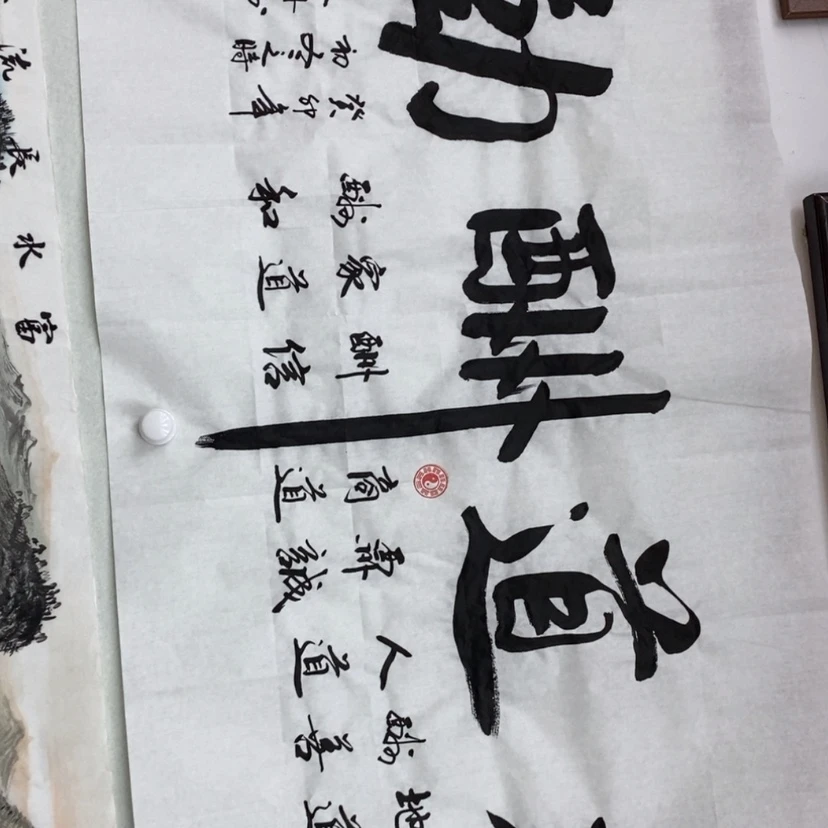 道酬勤
地道
酬善
人道
酬誠
商道
酬信
家道
酬和
癸卯年
初冬之時
富水長流